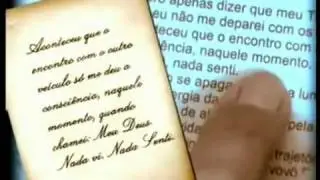 Aconteceu que o
encontro com o outro
veículo só me deu a
consciência, naquele
momento, quando
chamei: Meu Deus.
Nada vi. Nada Senti.
o apenas dizer que meu T
eu não me deparei com os
teceu que o encontro com
ência, naquele momento.
, nada senti.
o se apaga
lu
ergia da
ambé
pela
trajeto